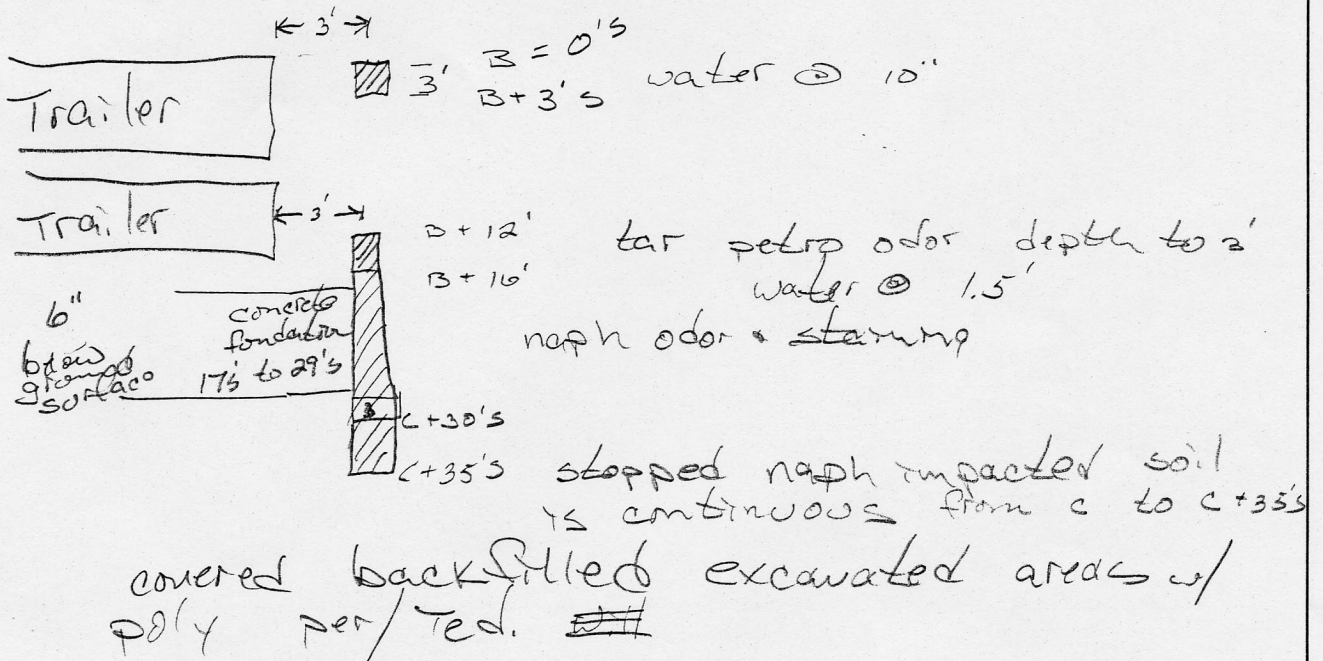 ← 3' →
Trailer
3' B = 0's
B + 3's
water @ 10"
Trailer
← 3' →
B + 12'
B + 16'
tar petro odor depth to 3'
water @ 1.5'
naph odor & staining
6"
below
ground
surface
concrete
fondation
17's to 29's
C+30's
C+35's stopped naph impacted soil
is continuous from C to C+35's
covered backfilled excavated areas w/
poly per/ Ted.